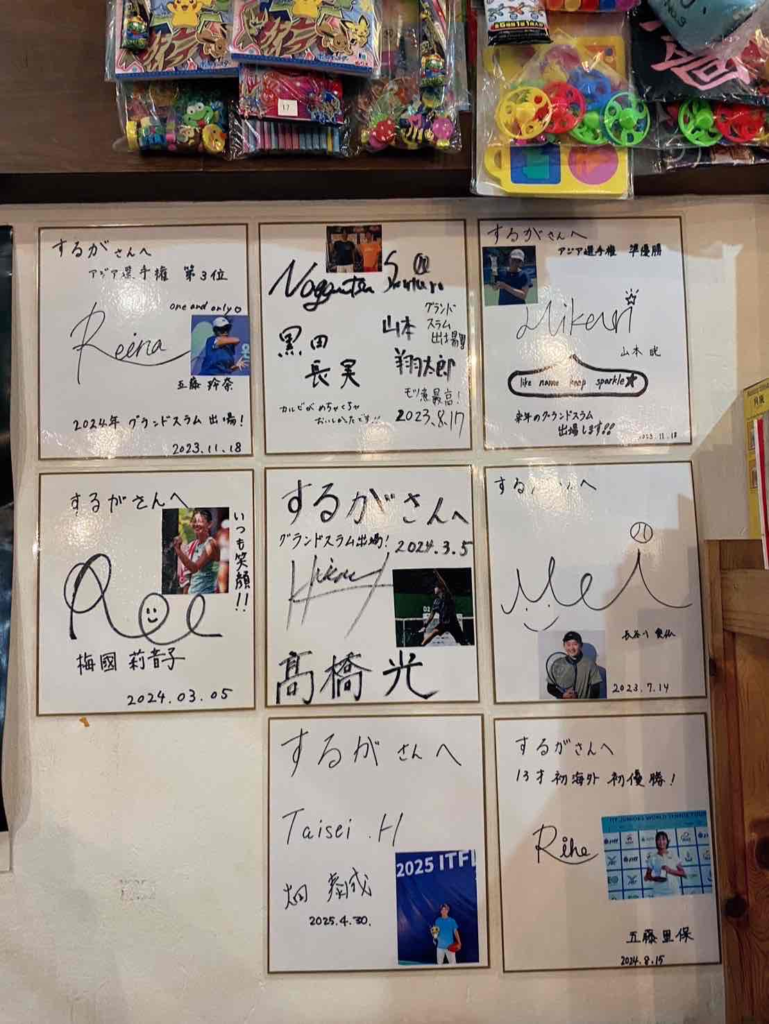 17
するがさんへ
アジア選手権 第3位
one and only
Reina
五藤 玲奈
2024年 グランドスラム 出場!
2023.11.18
黒田
長実
カルビがめちゃくちゃ
おいしかったです!!
山本
翔太郎
グランド
スラム
出場
モツ煮最高!
2023.8.17
するがさんへ
アジア選手権 準優勝
Mikeuri
山本
like name keep sparkle
来年のグランドスラム
出場します!!
2023.11.18
するがさんへ
いつも笑顔!!
梅國 莉音子
2024.03.05
するがさんへ
グランドスラム出場!
2024.3.5
髙橋 光
する へ
Mei
2023.7.14
するがさんへ
Taisei.H
畑 泰成
2025.4.30.
2025 ITF
するがさんへ
13才初海外 初優勝!
Rihe
ITF JUNIORS WORLD TENNIS TOUR
五藤里保
2024.8.15